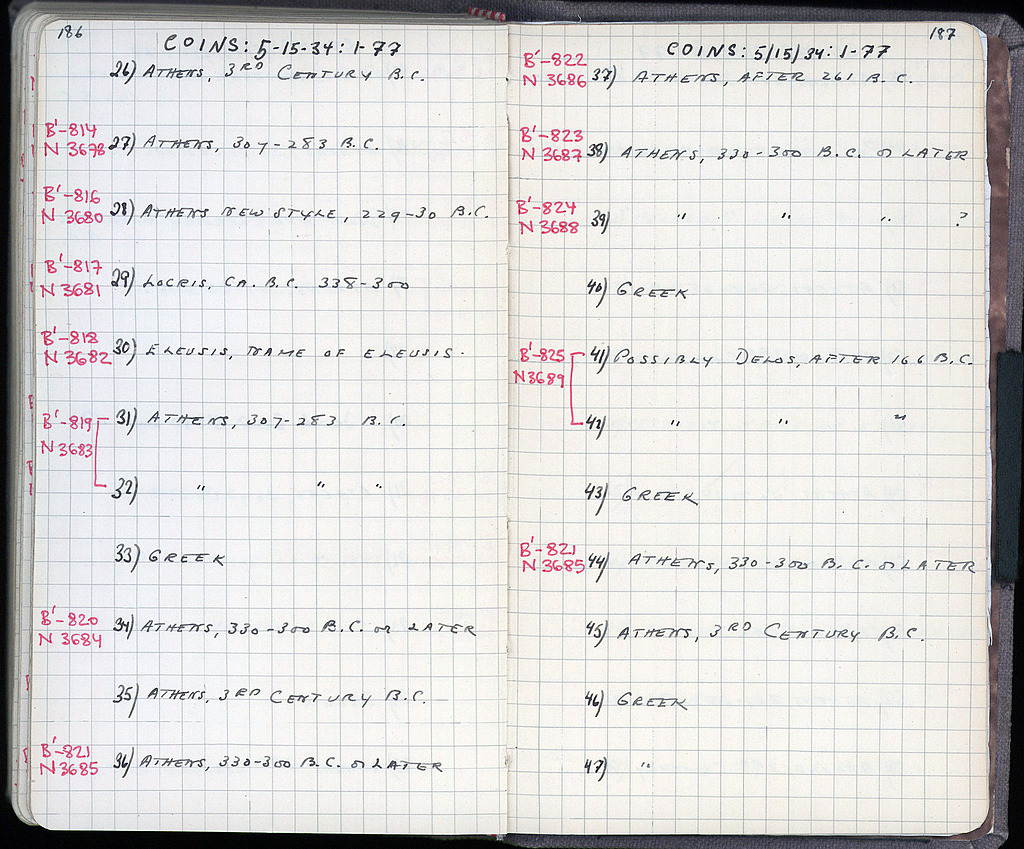 186
COINS: 5-15-34: 1-77
26) ATHENS, 3RD CENTURY B.C.
B'-814
N 3678 27) ATHENS, 307-283 B.C.
B'-816
N 3680 28) ATHENS NEW STYLE, 229-30 B.C.
B'-817
N 3681 29) LOCRIS, CA. B.C. 338-300
B'-818
N 3682 30) ELEUSIS, NAME OF ELEUSIS.
B'-819 31) ATHENS, 307-283 B.C.
N 3683
32) " " "
33) GREEK
B'-820
N 3684 34) ATHENS, 330-300 B.C. or LATER
35) ATHENS, 3RD CENTURY B.C.
B'-821
N 3685 36) ATHENS, 330-300 B.C. or LATER
187
COINS: 5/15/34: 1-77
B'-822
N 3686 37) ATHENS, AFTER 261 B.C.
B'-823
N 3687 38) ATHENS, 330-300 B.C. or LATER
B'-824
N 3688 39) " " " ?
40) GREEK
B'-825 41) POSSIBLY DELOS, AFTER 166 B.C.
N3689
42) " " "
43) GREEK
B'-821
N 3685 44) ATHENS, 330-300 B.C. or LATER
45) ATHENS, 3RD CENTURY B.C.
46) GREEK
47) "